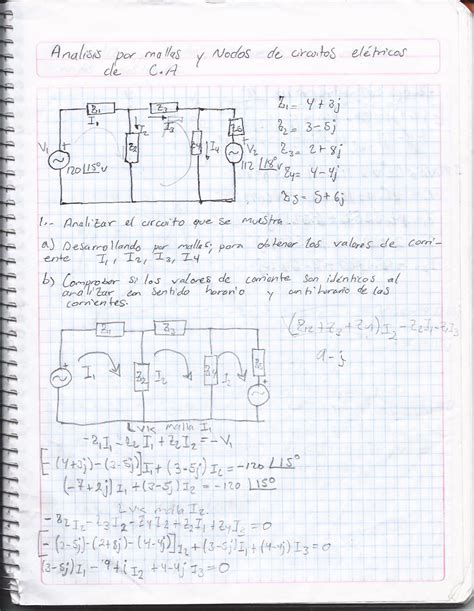 Analisis por mallas y Nodos de circuitos elétricos
de C.A
Z1 Z3
I1 I2 I3
V1 Z2 Z4 I4 Z5 V2
120 ∠15° v 112 ∠18° v
Z1 = 4+3j
Z2 = 3-5j
Z3 = 2+8j
Z4 = 4-4j
Z5 = 5+6j
1.- Analizar el circuito que se muestra.
a) Desarrollando por mallas; para obtener los valores de corri-
ente I1, I2, I3, I4
b) Comprobar si los valores de corriente son idénticos al
analizar con sentido horario y antihorario de las
corrientes.
Z1 Z3
I1 Z2 I2 Z4 I3 Z5
(Z2+Z3+Z4)I2-Z2I1-Z4I3
9-j
LVK malla I1
-Z1I1-Z2I1+Z2I2=-V1
[-(4+3j)-(3-5j)]I1+(3-5j)I2=-120∠15°
(-7+2j)I1+(3-5j)I2=-120∠15°
LVK malla I2
-Z2I2-Z3I2-Z4I2+Z2I1+Z4I3=0
[-(3-5j)-(2+8j)-(4-4j)]I2+(3-5j)I1+(4-4j)I3=0
(3-5j)I1-9+jI2+4-4jI3=0